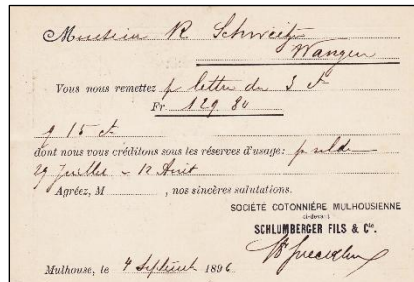 Monsieur R Schweitz
Wangen
Vous nous remettez p lettre du 3 ct
Fr. 129 80
p 15 ct
dont nous vous créditons sous les réserves d'usage: p solde
29 Juillet - 12 Août
Agréez, M , nos sincères salutations.
SOCIÉTÉ COTONNIÈRE MULHOUSIENNE
ci-devant
SCHLUMBERGER FILS & Cie.
Mulhouse, le 4 Septembre 1896